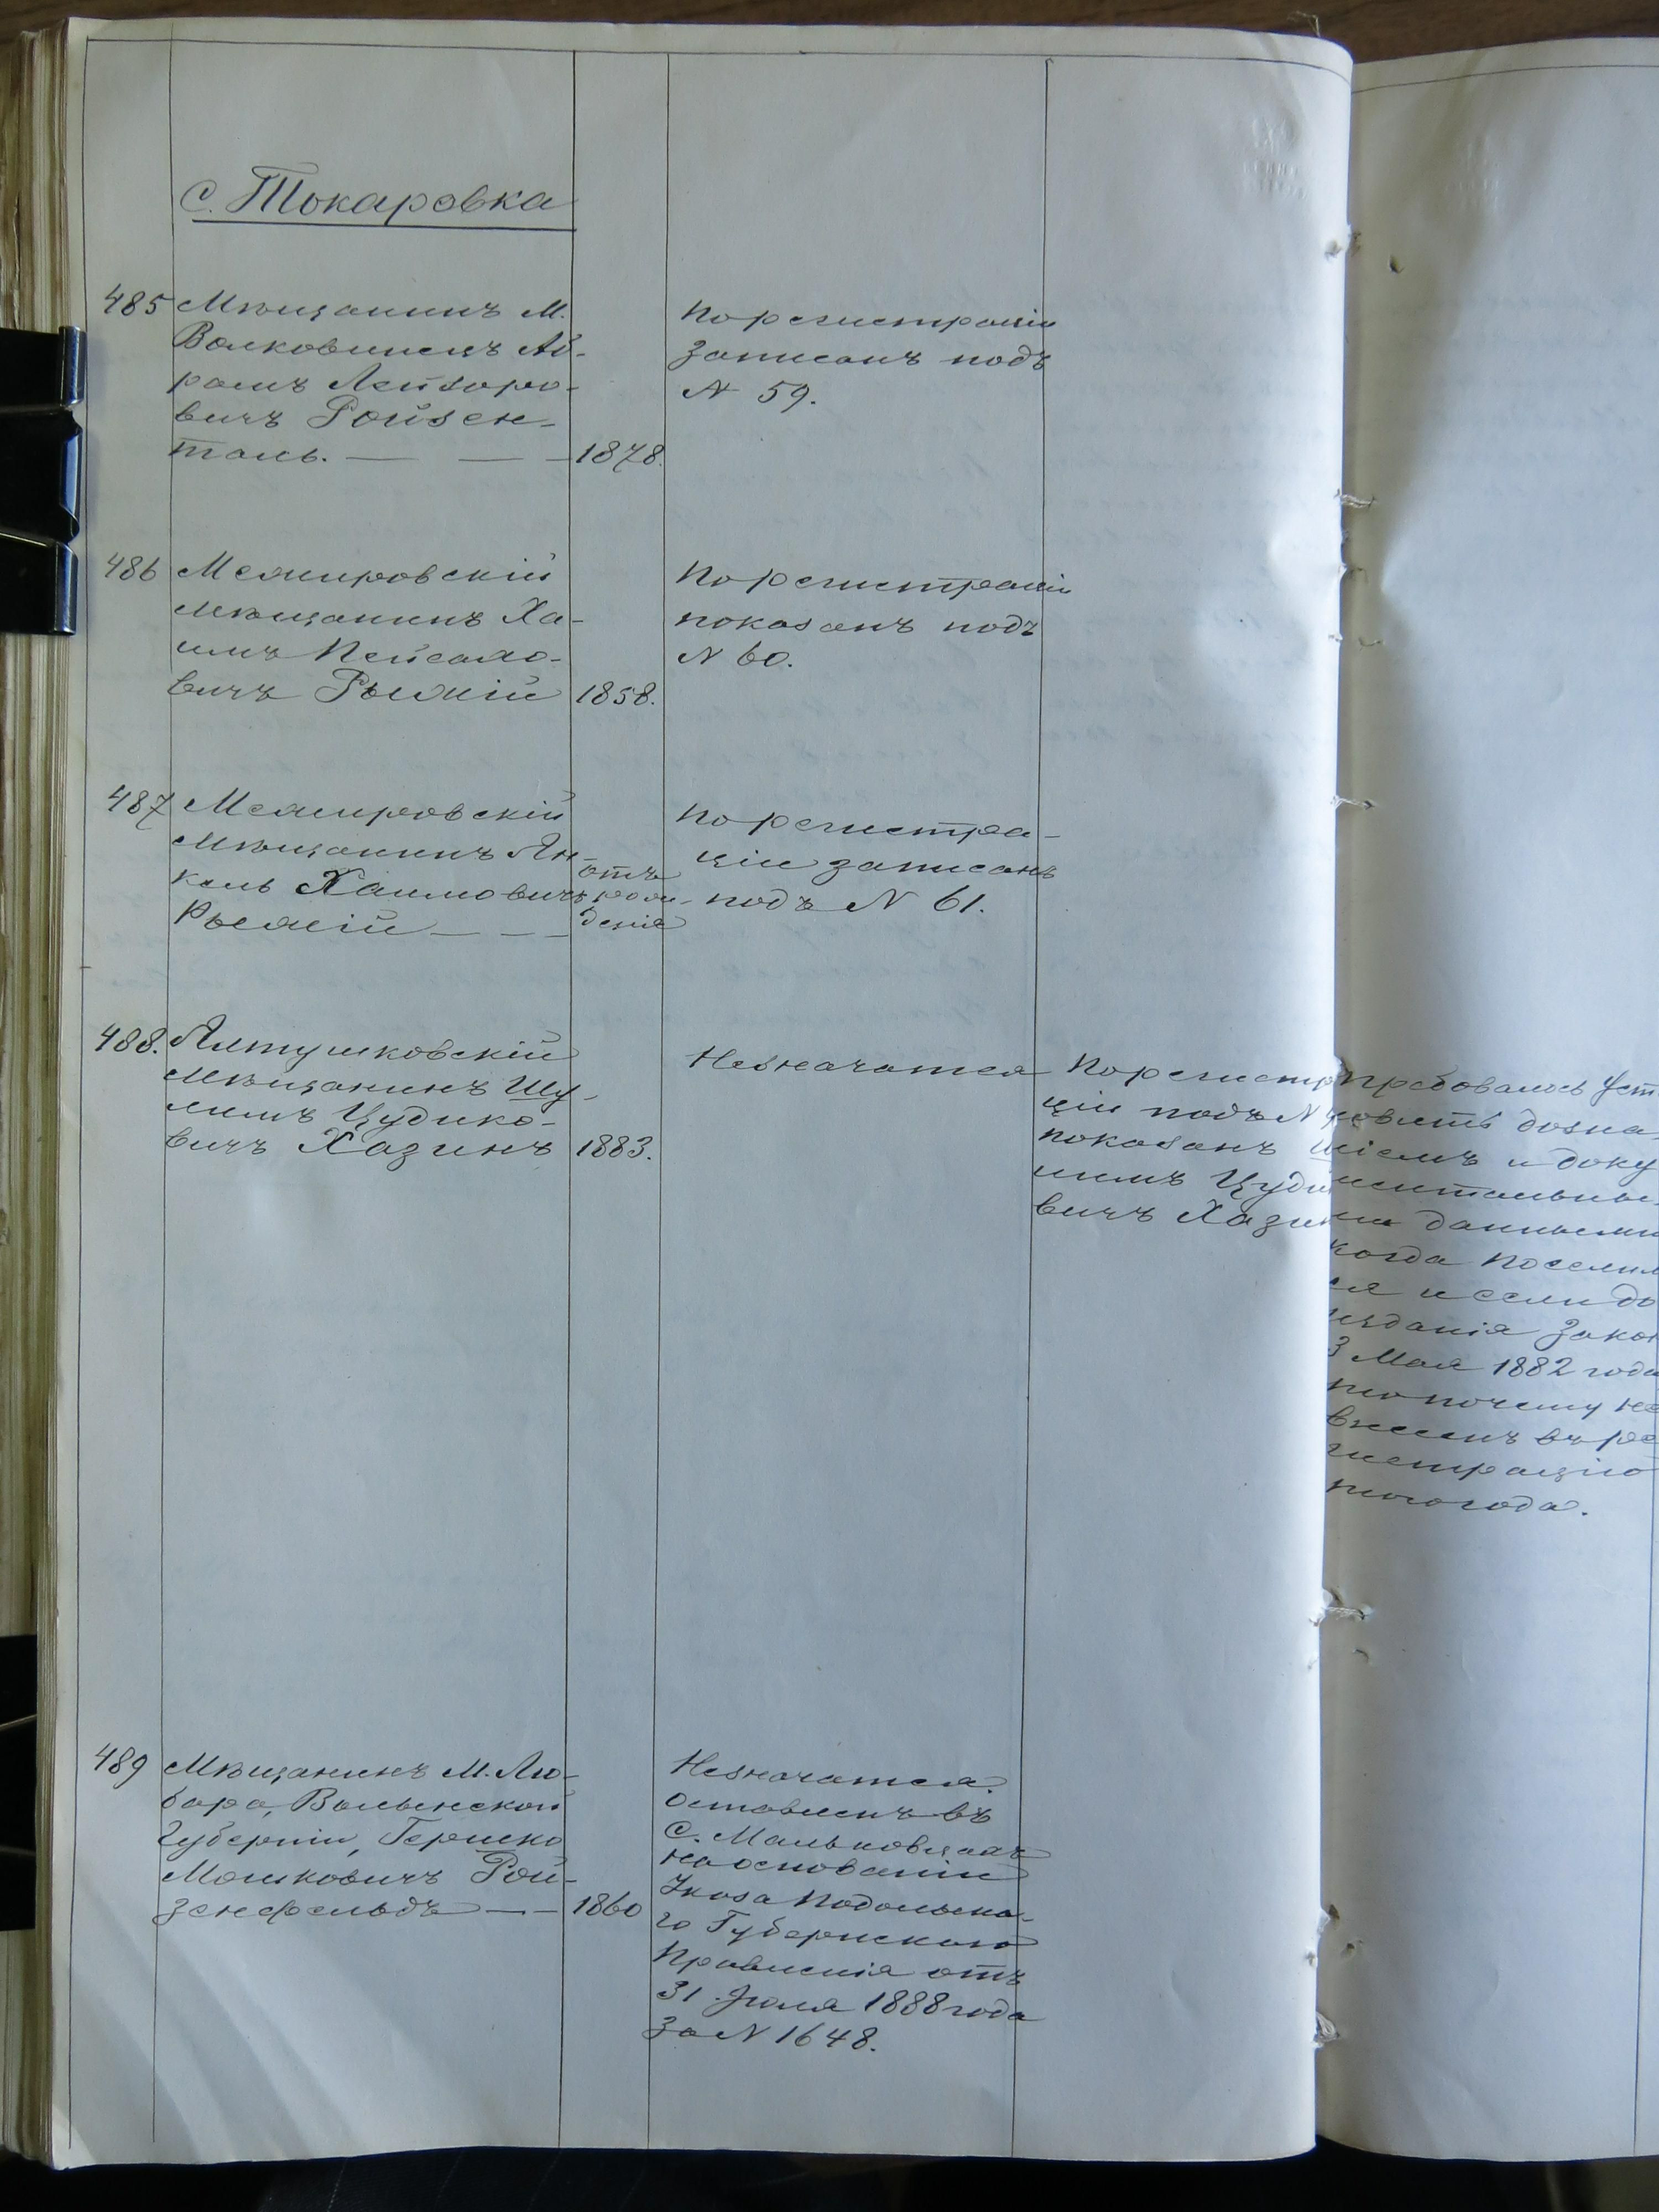 с. Токаровка
485 Мѣщанинъ м.
Волковинецъ Аб-
рамъ Лейзоро-
вичъ Ройзен-
таль. — — — 1878.
По регистраціи
записанъ подъ
N 59.
486 Межировскій
мѣщанинъ Ха-
имъ Пейсахо-
вичъ Рыжій 1858.
По регистраціи
показанъ подъ
N 60.
487 Межировскій
мѣщанинъ Ян-
кель Хаимовичъ
Рыжій — — —
отъ
рож-
денія
По регистра-
ціи записанъ
подъ N 61.
488. Ялтушковскій
мѣщанинъ Шу-
лимъ Цудико-
вичъ Хазинъ 1883.
Незначится
По регистр
ціи подъ N
показанъ
лимъ Цуди
вичъ Хазин
требовалось уст
новить дозна-
ніемъ и доку
ментальны-
ми данными
когда поселил
ся и если до
изданія зако
3 Мая 1882 года
то почему не
внесенъ въ ре
гистрацію
того года.
489 Мѣщанинъ м. Лю-
бара, Волынской
Губерніи, Гершко
Мошковичъ Рой-
зенфельдъ — — 1860
Незначится.
Оставленъ въ
с. Мальковцахъ
на основаніи
Указа Подольска-
го Губернскаго
Правленія отъ
31 Іюля 1888 года
за N 1648.